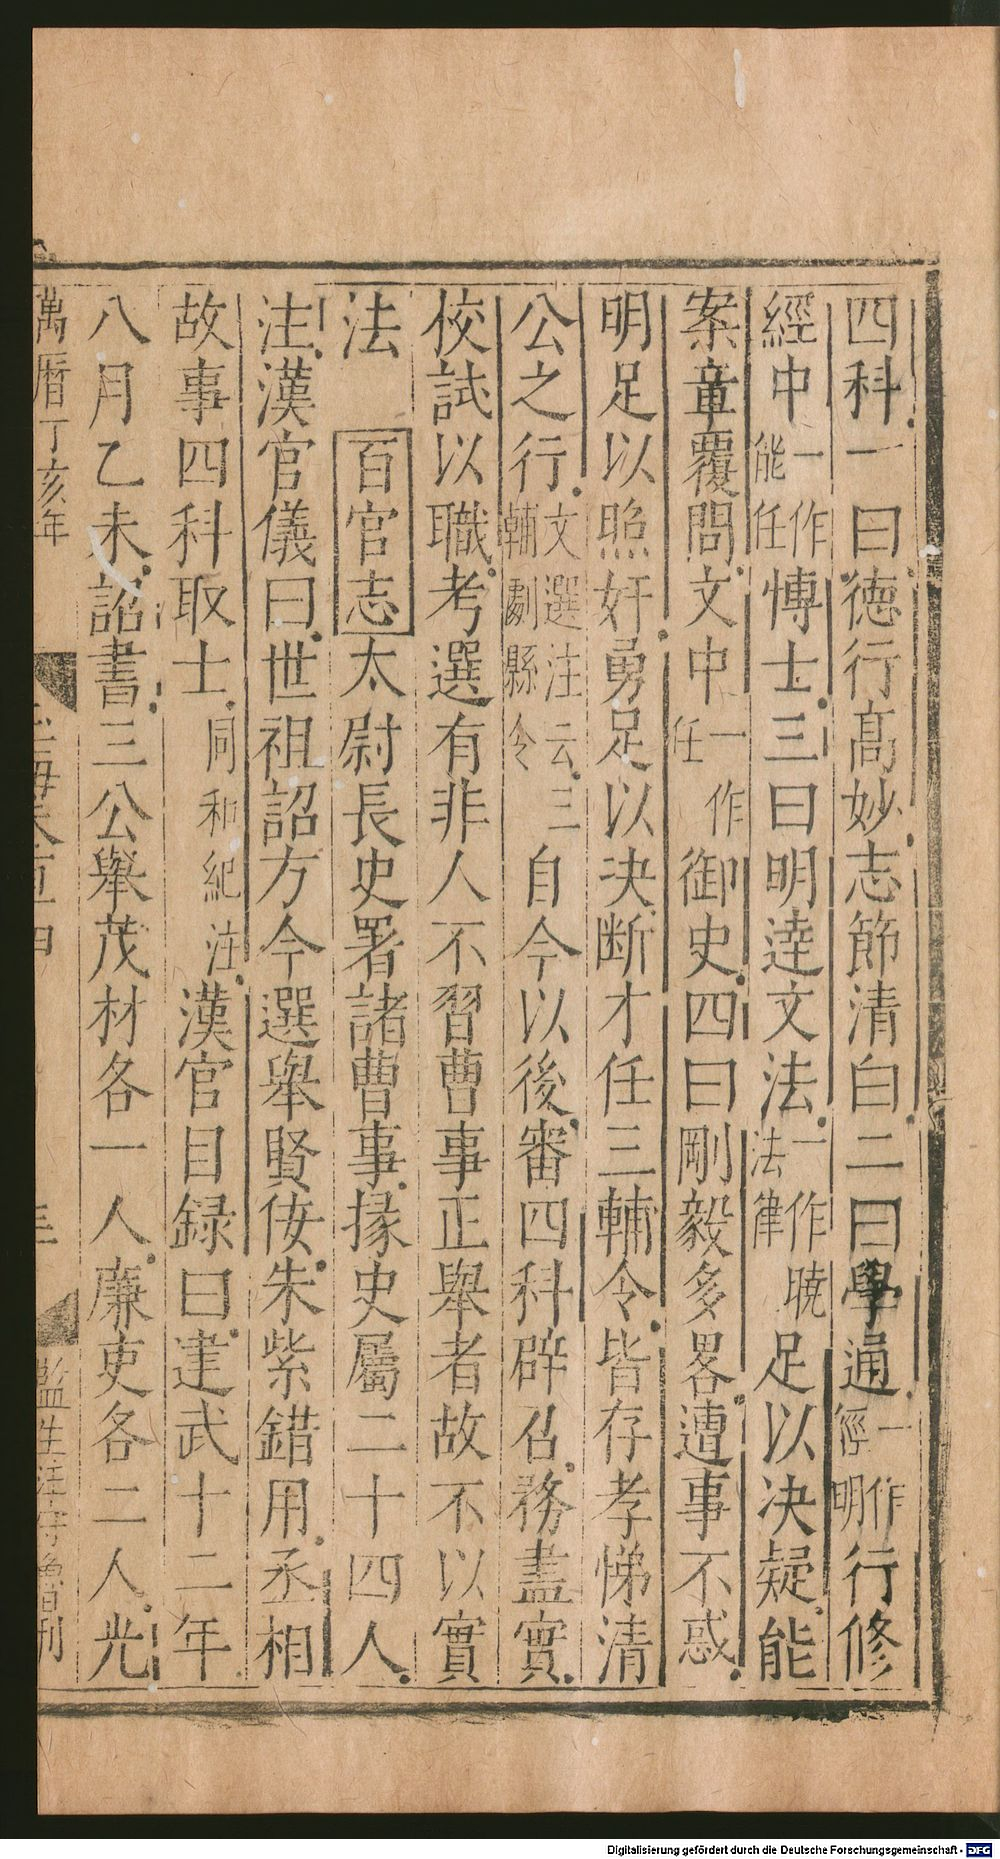 四科一曰德行高妙志節清白二曰學通一作經明行修
經中一作能任博士三曰明達文法一作法律曉足以決疑能
案章覆問文中一作任御史四曰剛毅多畧遭事不惑
明足以照姧勇足以决断才任三輔令皆存孝悌清
公之行文選注云三輔劇縣令自今以後審四科辟召務盡實
校試以職考選有非人不習曹事正舉者故不以實
法 百官志太尉長史署諸曹事掾史屬二十四人
注漢官儀曰世祖詔方今選舉賢佞朱紫錯用丞相
故事四科取士同和紀注漢官目録曰建武十二年
八月乙未詔書三公舉茂材各一人廉吏各二人光
萬曆丁亥年
監生汪
刊
Digitalisierung gefördert durch die Deutsche Forschungsgemeinschaft - DFG